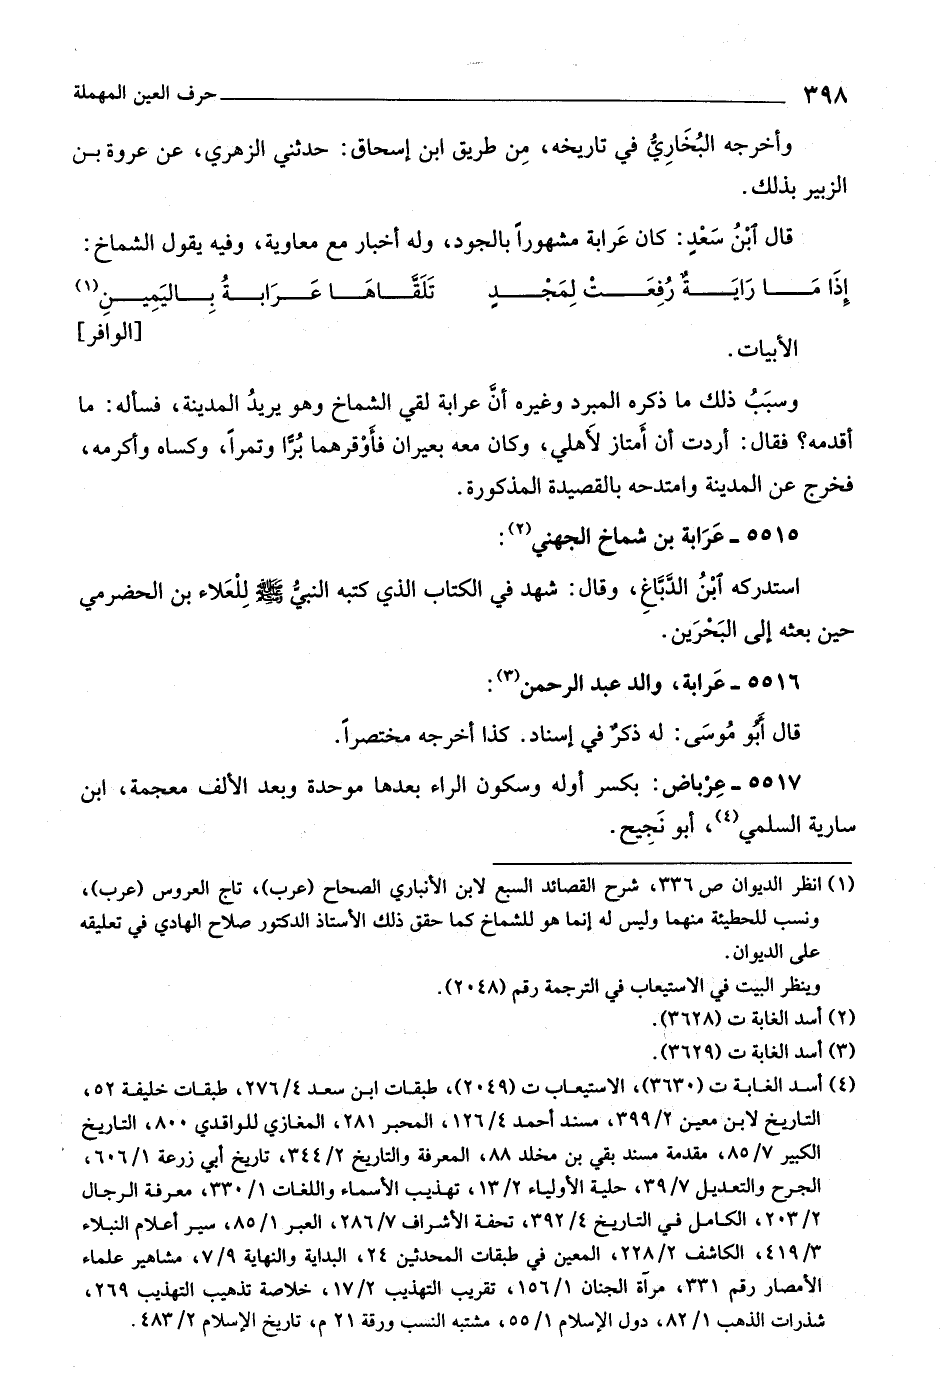 ٣٩٨ حرف العين المهملة
وأخرجه البُخَارِيُّ في تاريخه، مِن طريق ابن إسحاق: حدثني الزهري، عن عروة بن
الزبير بذلك.
قال ٱبْنُ سَعْدٍ: كان عَرابة مشهوراً بالجود، وله أخبار مع معاوية، وفيه يقول الشماخ:
إِذَا مَـــا رَايَـــةٌ رُفِعَـــتْ لِمَجْـــدٍ تَلَقَّـــاهَـــا عَـــرَابـــةُ بِـــاليَمِيـــنِ(١)
[الوافر]
الأبيات.
وسبَبُ ذلك ما ذكره المبرد وغيره أنَّ عرابة لقي الشماخ وهو يريدُ المدينة، فسأله: ما
أقدمه؟ فقال: أردت أن أَمتاز لأَهلي، وكان معه بعيران فأَوْقرهما بُرًّا وتمراً، وكساه وأكرمه،
فخرج عن المدينة وامتدحه بالقصيدة المذكورة.
٥٥١٥ ـ عَرَابة بن شماخ الجهني(٢):
استدركه ٱبْنُ الدَّبَّاغِ، وقال: شهد في الكتاب الذي كتبه النبيُّ ﷺ لِلْعَلاء بن الحضرمي
حين بعثه إلى البَحْرَين.
٥٥١٦ ـ عَرابة، والد عبد الرحمن(٣):
قال أَبُو مُوسَى: له ذكرٌ في إسناد. كذا أخرجه مختصراً.
٥٥١٧ ـ عِرْباض: بكسر أوله وسكون الراء بعدها موحدة وبعد الألف معجمة، ابن
سارية السلمي(٤)، أبو نَجِيح.
(١) انظر الديوان ص ٣٣٦، شرح القصائد السبع لابن الأنباري الصحاح (عرب)، تاج العروس (عرب)،
ونسب للحطيئة منهما وليس له إنما هو للشماخ كما حقق ذلك الأستاذ الدكتور صلاح الهادي في تعليقه
على الديوان.
وينظر البيت في الاستيعاب في الترجمة رقم (٢٠٤٨).
(٢) أسد الغابة ت (٣٦٢٨).
(٣) أسد الغابة ت (٣٦٢٩).
(٤) أسد الغابة ت (٣٦٣٠)، الاستيعاب ت (٢٠٤٩)، طبقات ابن سعد ٤/ ٢٧٦، طبقات خليفة ٥٢،
التاريخ لابن معين ٢/ ٣٩٩، مسند أحمد ٤/ ١٢٦، المحبر ٢٨١، المغازي للواقدي ٨٠٠، التاريخ
الكبير ٧/ ٨٥، مقدمة مسند بقي بن مخلد ٨٨، المعرفة والتاريخ ٢/ ٣٤٤، تاريخ أبي زرعة ١/ ٦٠٦،
الجرح والتعديل ٧/ ٣٩، حلية الأولياء ٢/ ١٣، تهذيب الأسماء واللغات ١/ ٣٣٠، معرفة الرجال
٢/ ٢٠٣، الكامل في التاريخ ٤/ ٣٩٢، تحفة الأشراف ٧/ ٢٨٦، العبر ١/ ٨٥، سير أعلام النبلاء
٣/ ٤١٩، الكاشف ٢/ ٢٢٨، المعين في طبقات المحدثين ٢٤، البداية والنهاية ٩/ ٧، مشاهير علماء
الأمصار رقم ٣٣١، مرآة الجنان ١/ ١٥٦، تقريب التهذيب ٢/ ١٧، خلاصة تذهيب التهذيب ٢٦٩،
شذرات الذهب ١/ ٨٢، دول الإسلام ١/ ٥٥، مشتبه النسب ورقة ٢١ م، تاريخ الإسلام ٢/ ٤٨٣.